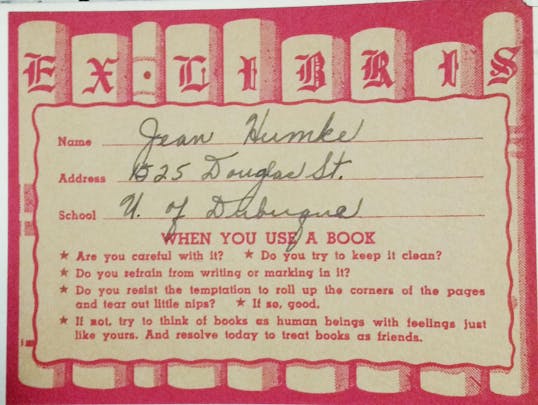 EX·LIBRIS
Name Jean Humke
Address 1525 Douglas St.
School U. of Dubuque
WHEN YOU USE A BOOK
★ Are you careful with it? ★ Do you try to keep it clean?
★ Do you refrain from writing or marking in it?
★ Do you resist the temptation to roll up the corners of the pages
and tear out little nips? ★ If so, good.
★ If not, try to think of books as human beings with feelings just
like yours. And resolve today to treat books as friends.